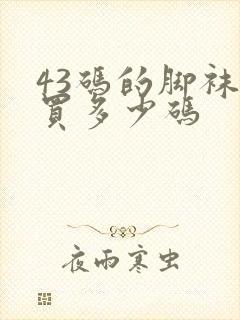 43碼的脚袜
買多少碼
夜雨寒虫